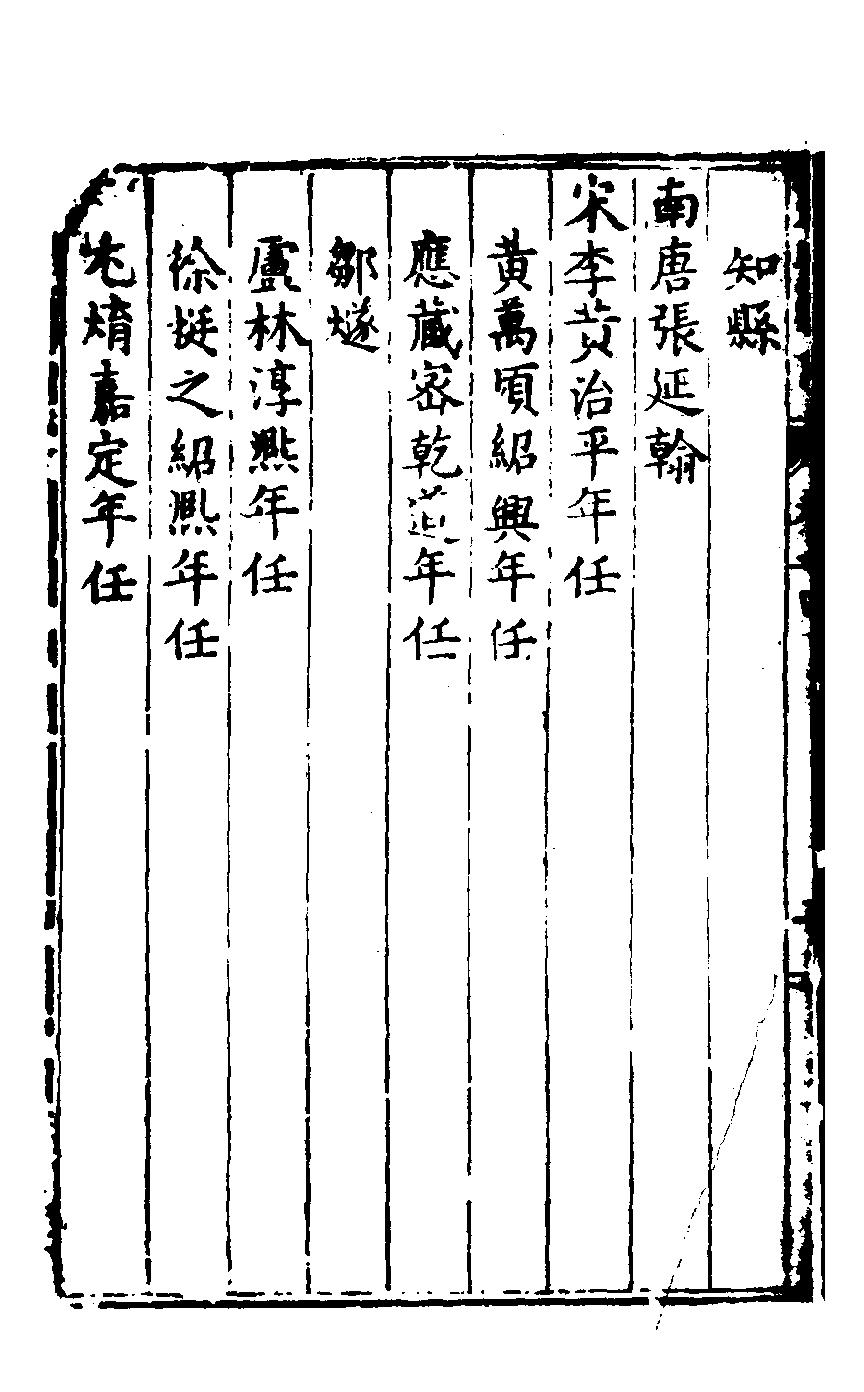 知縣
南唐張延翰
宋李黃治平年任
黃萬頃紹興年任
應藏密乾道年任
鄒燧
盧林淳熈年任
徐挺之紹熈年任
煟嘉定年任